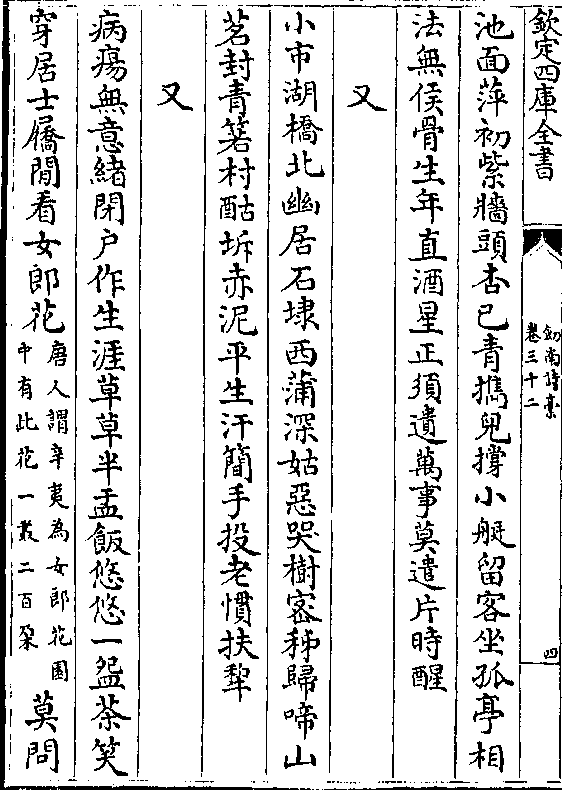 欽定四庫全書
劒南詩藁
卷三十二
四
池面萍初紫牆頭杏已青㩦兒撐小艇留客坐孤亭相
法無侯骨生年直酒星正須遺萬事莫遣片時醒
又
小市湖橋北幽居石埭西蒲深姑惡哭樹密秭歸啼山
茗封青箬村酤坼赤泥平生汗簡手投老慣扶犂
又
病瘍無意緒閉户作生涯草草半盂飯悠悠一盌茶笑
穿居士屩閒看女郎花唐人謂辛夷為女郎花園
中有此花一叢二百朶莫問